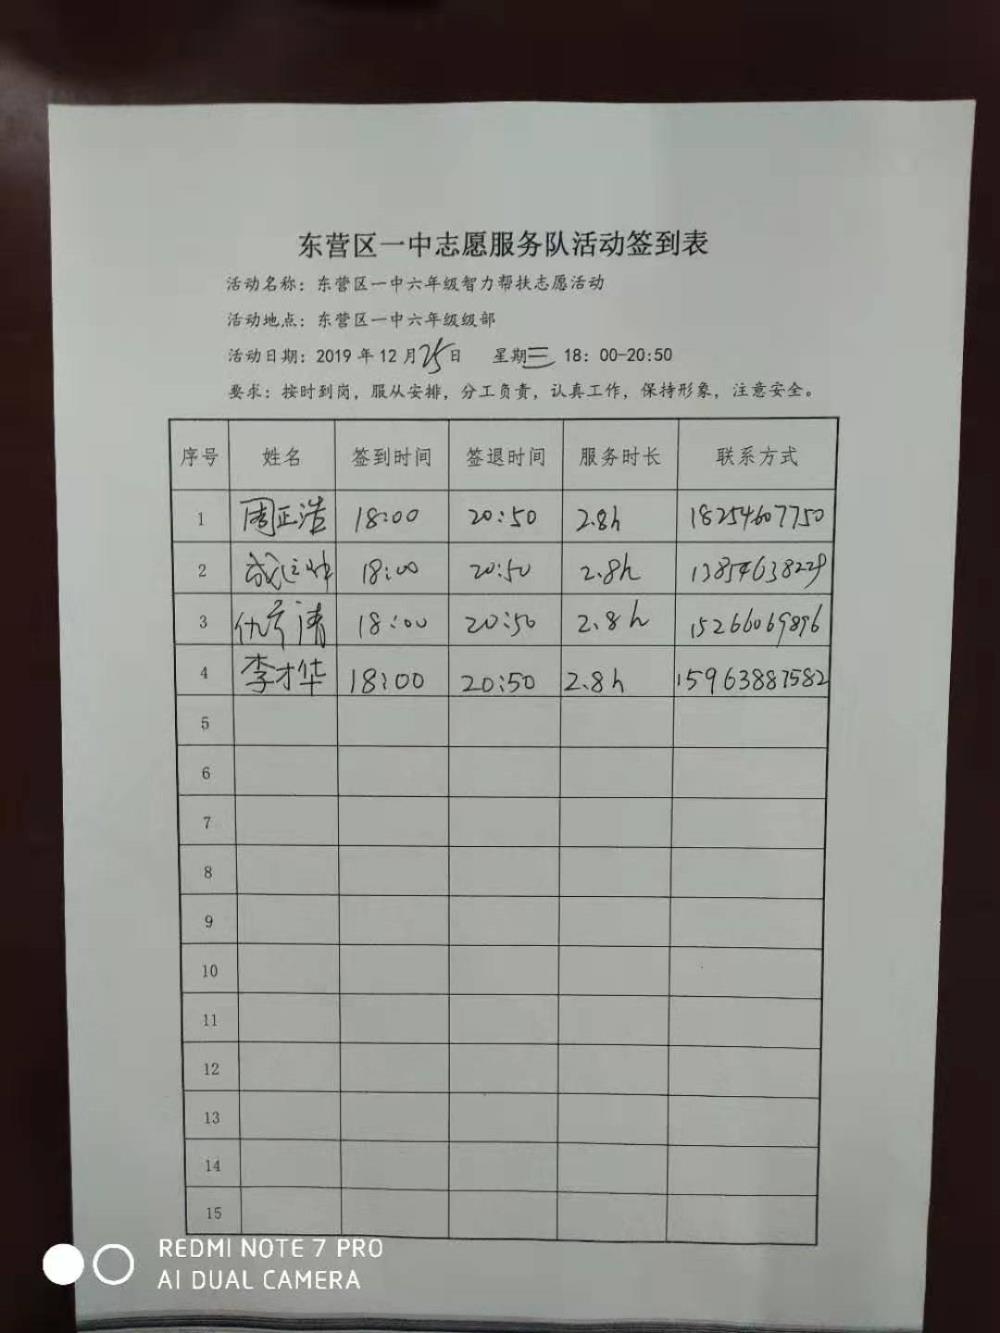 东营区一中志愿服务队活动签到表
活动名称：东营区一中六年级智力帮扶志愿活动
活动地点：东营区一中六年级级部
活动日期：2019 年 12 月 25 日 星期三 18：00-20:50
要求：按时到岗，服从安排，分工负责，认真工作，保持形象，注意安全。
序号 姓名 签到时间 签退时间 服务时长 联系方式
1 周正浩 18:00 20:50 2.8h 18254607750
2 18:00 20:50 2.8h 13854638229
3 18:00 20:50 2.8h 15266069896
4 李才华 18:00 20:50 2.8h 15963887582
5
6
7
8
9
10
11
12
13
14
15
REDMI NOTE 7 PRO
AI DUAL CAMERA